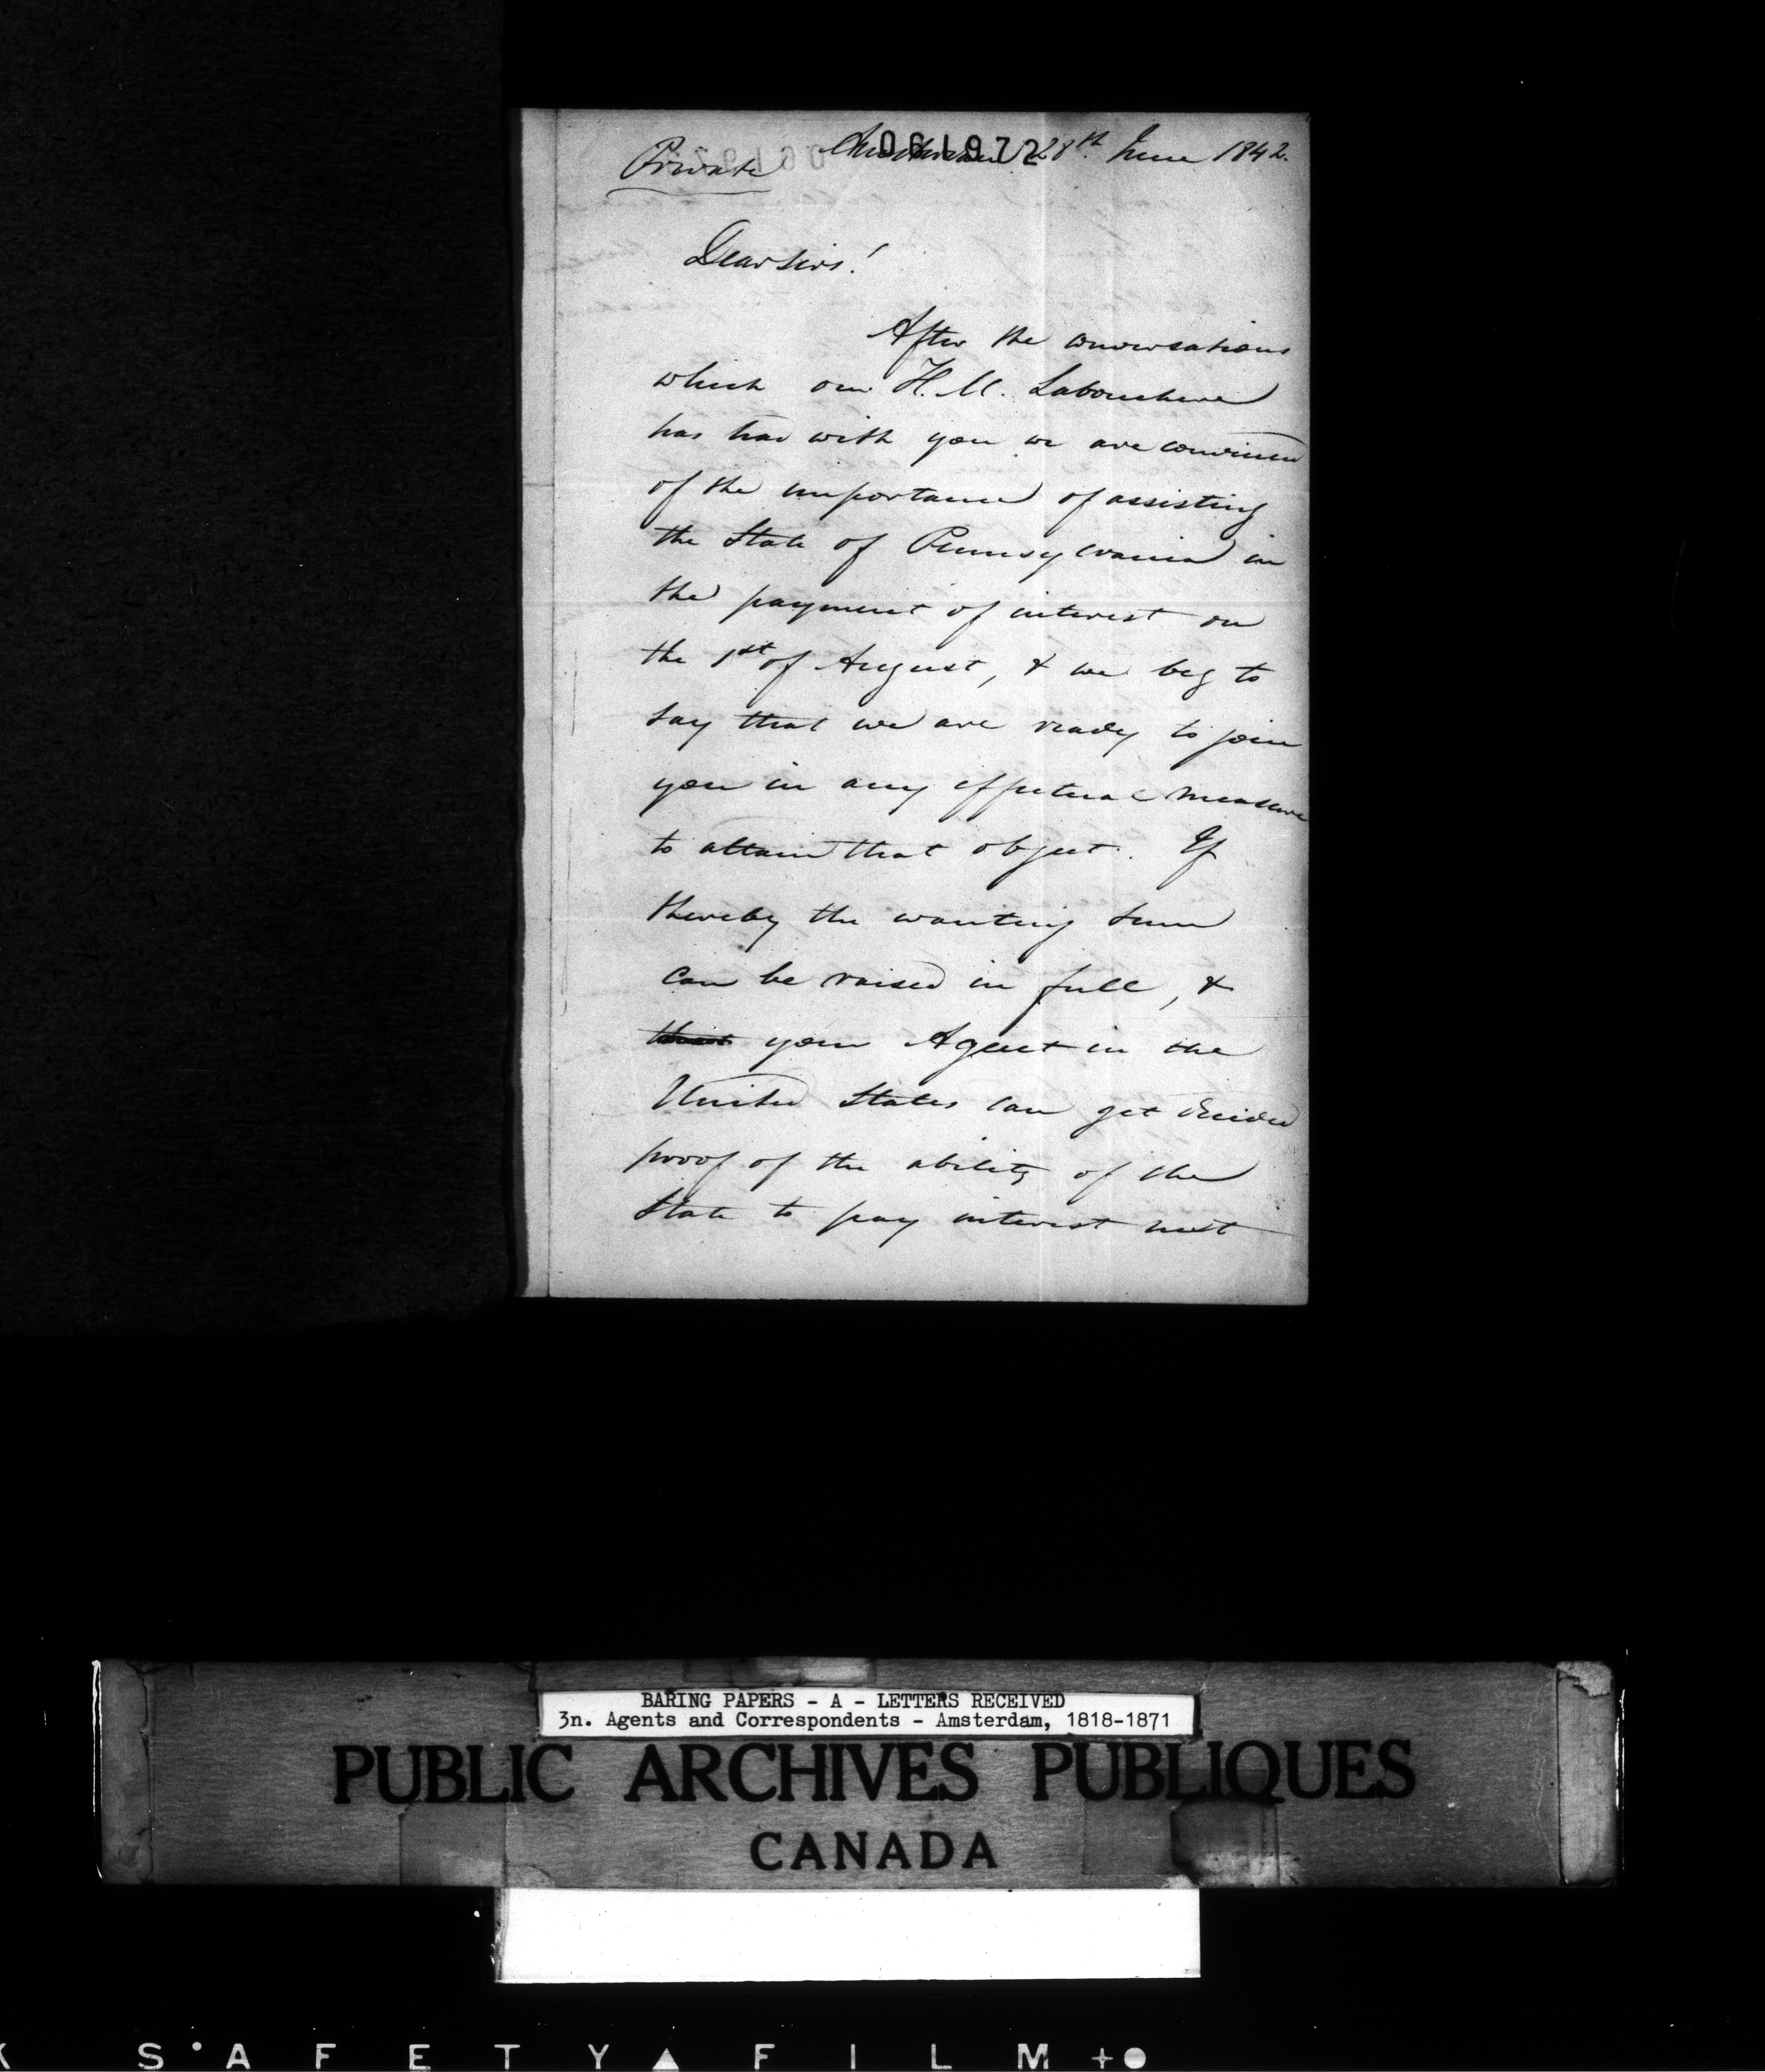 061972
Private Amsterdam 28th June 1842.
Dear Sirs!
After the conversations
which our H. M. Labouchere
has had with you we are convinced
of the importance of assisting
the State of Pennsylvania in
the payment of interest on
the 1st of August, & we beg to
say that we are ready to join
you in any effectual measure
to attain that object. If
thereby the wanting sum
can be raised in full, &
your Agent in the
United States can get decided
proof of the ability of the
State to pay interest next
BARING PAPERS - A - LETTERS RECEIVED
3n. Agents and Correspondents - Amsterdam, 1818-1871
PUBLIC ARCHIVES PUBLIQUES
CANADA
K SAFETY FILM